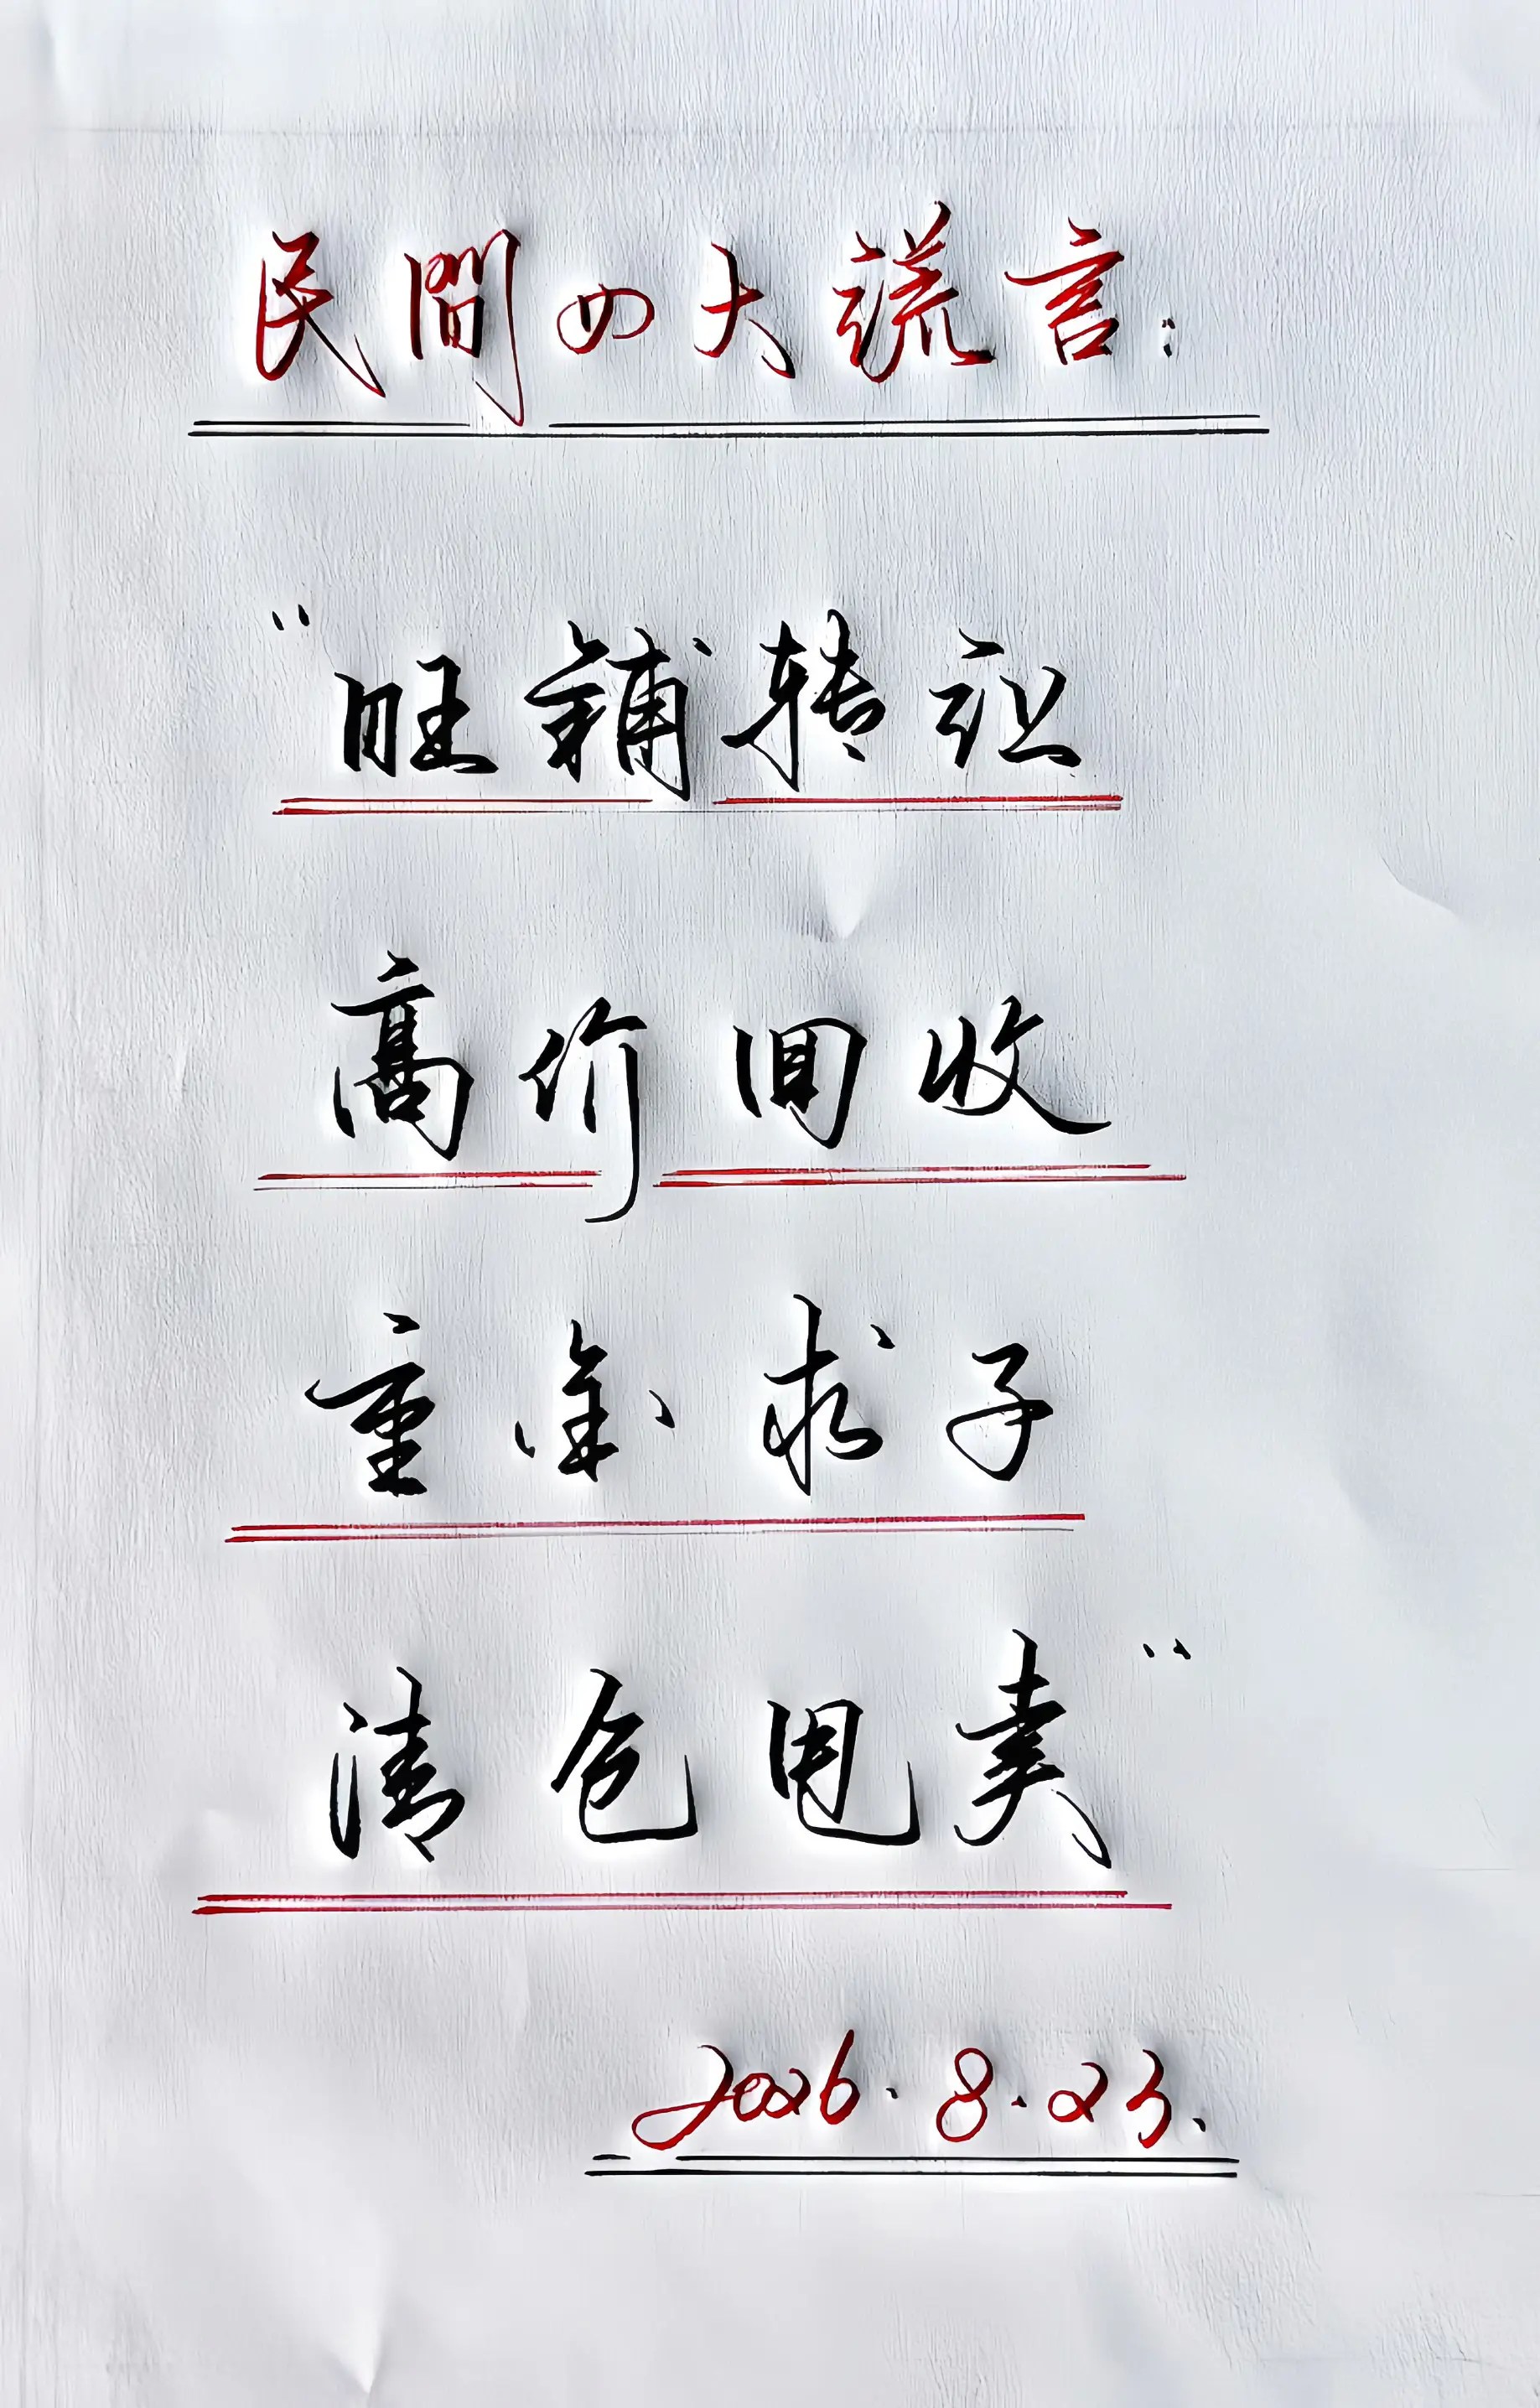 民間四大谎言：
“旺鋪转让
高价回收
重金求子
清仓甩卖”
2026.8.23.